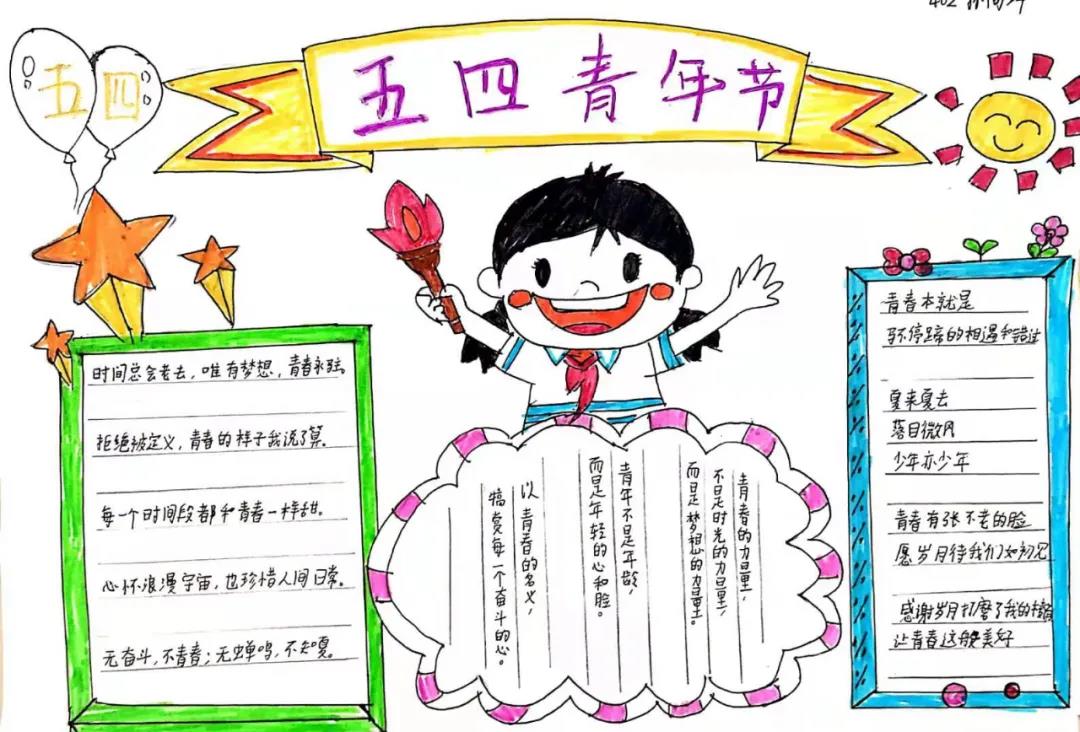 五 四
五四青年节
时间总会老去，唯有梦想，青春永驻。
拒绝被定义，青春的样子我说了算。
每一个时间段都和青春一样甜。
心怀浪漫宇宙，也珍惜人间日常。
无奋斗，不青春；无蝉鸣，不知夏。
青春的力量，
不是时光的力量，
而是梦想的力量。
青年不是年龄，
而是年轻的心和脸。
以青春的名义，
犒赏每一个奋斗的心。
青春本就是
马不停蹄的相遇和错过
夏来夏去
落日微风
少年亦少年
青春有张不老的脸
愿岁月待我们如初见
感谢岁月打磨了我的
让青春这般美好